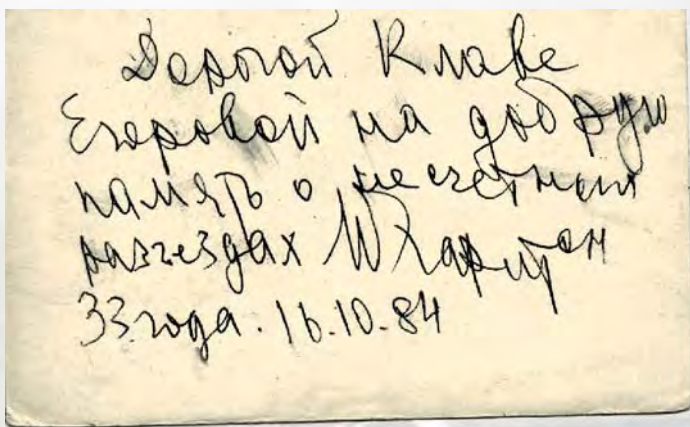 Дорогой Клаве
Егоровой на добрую
память о несчетных
разъездах Ю Харитон
33 года. 16.10.84